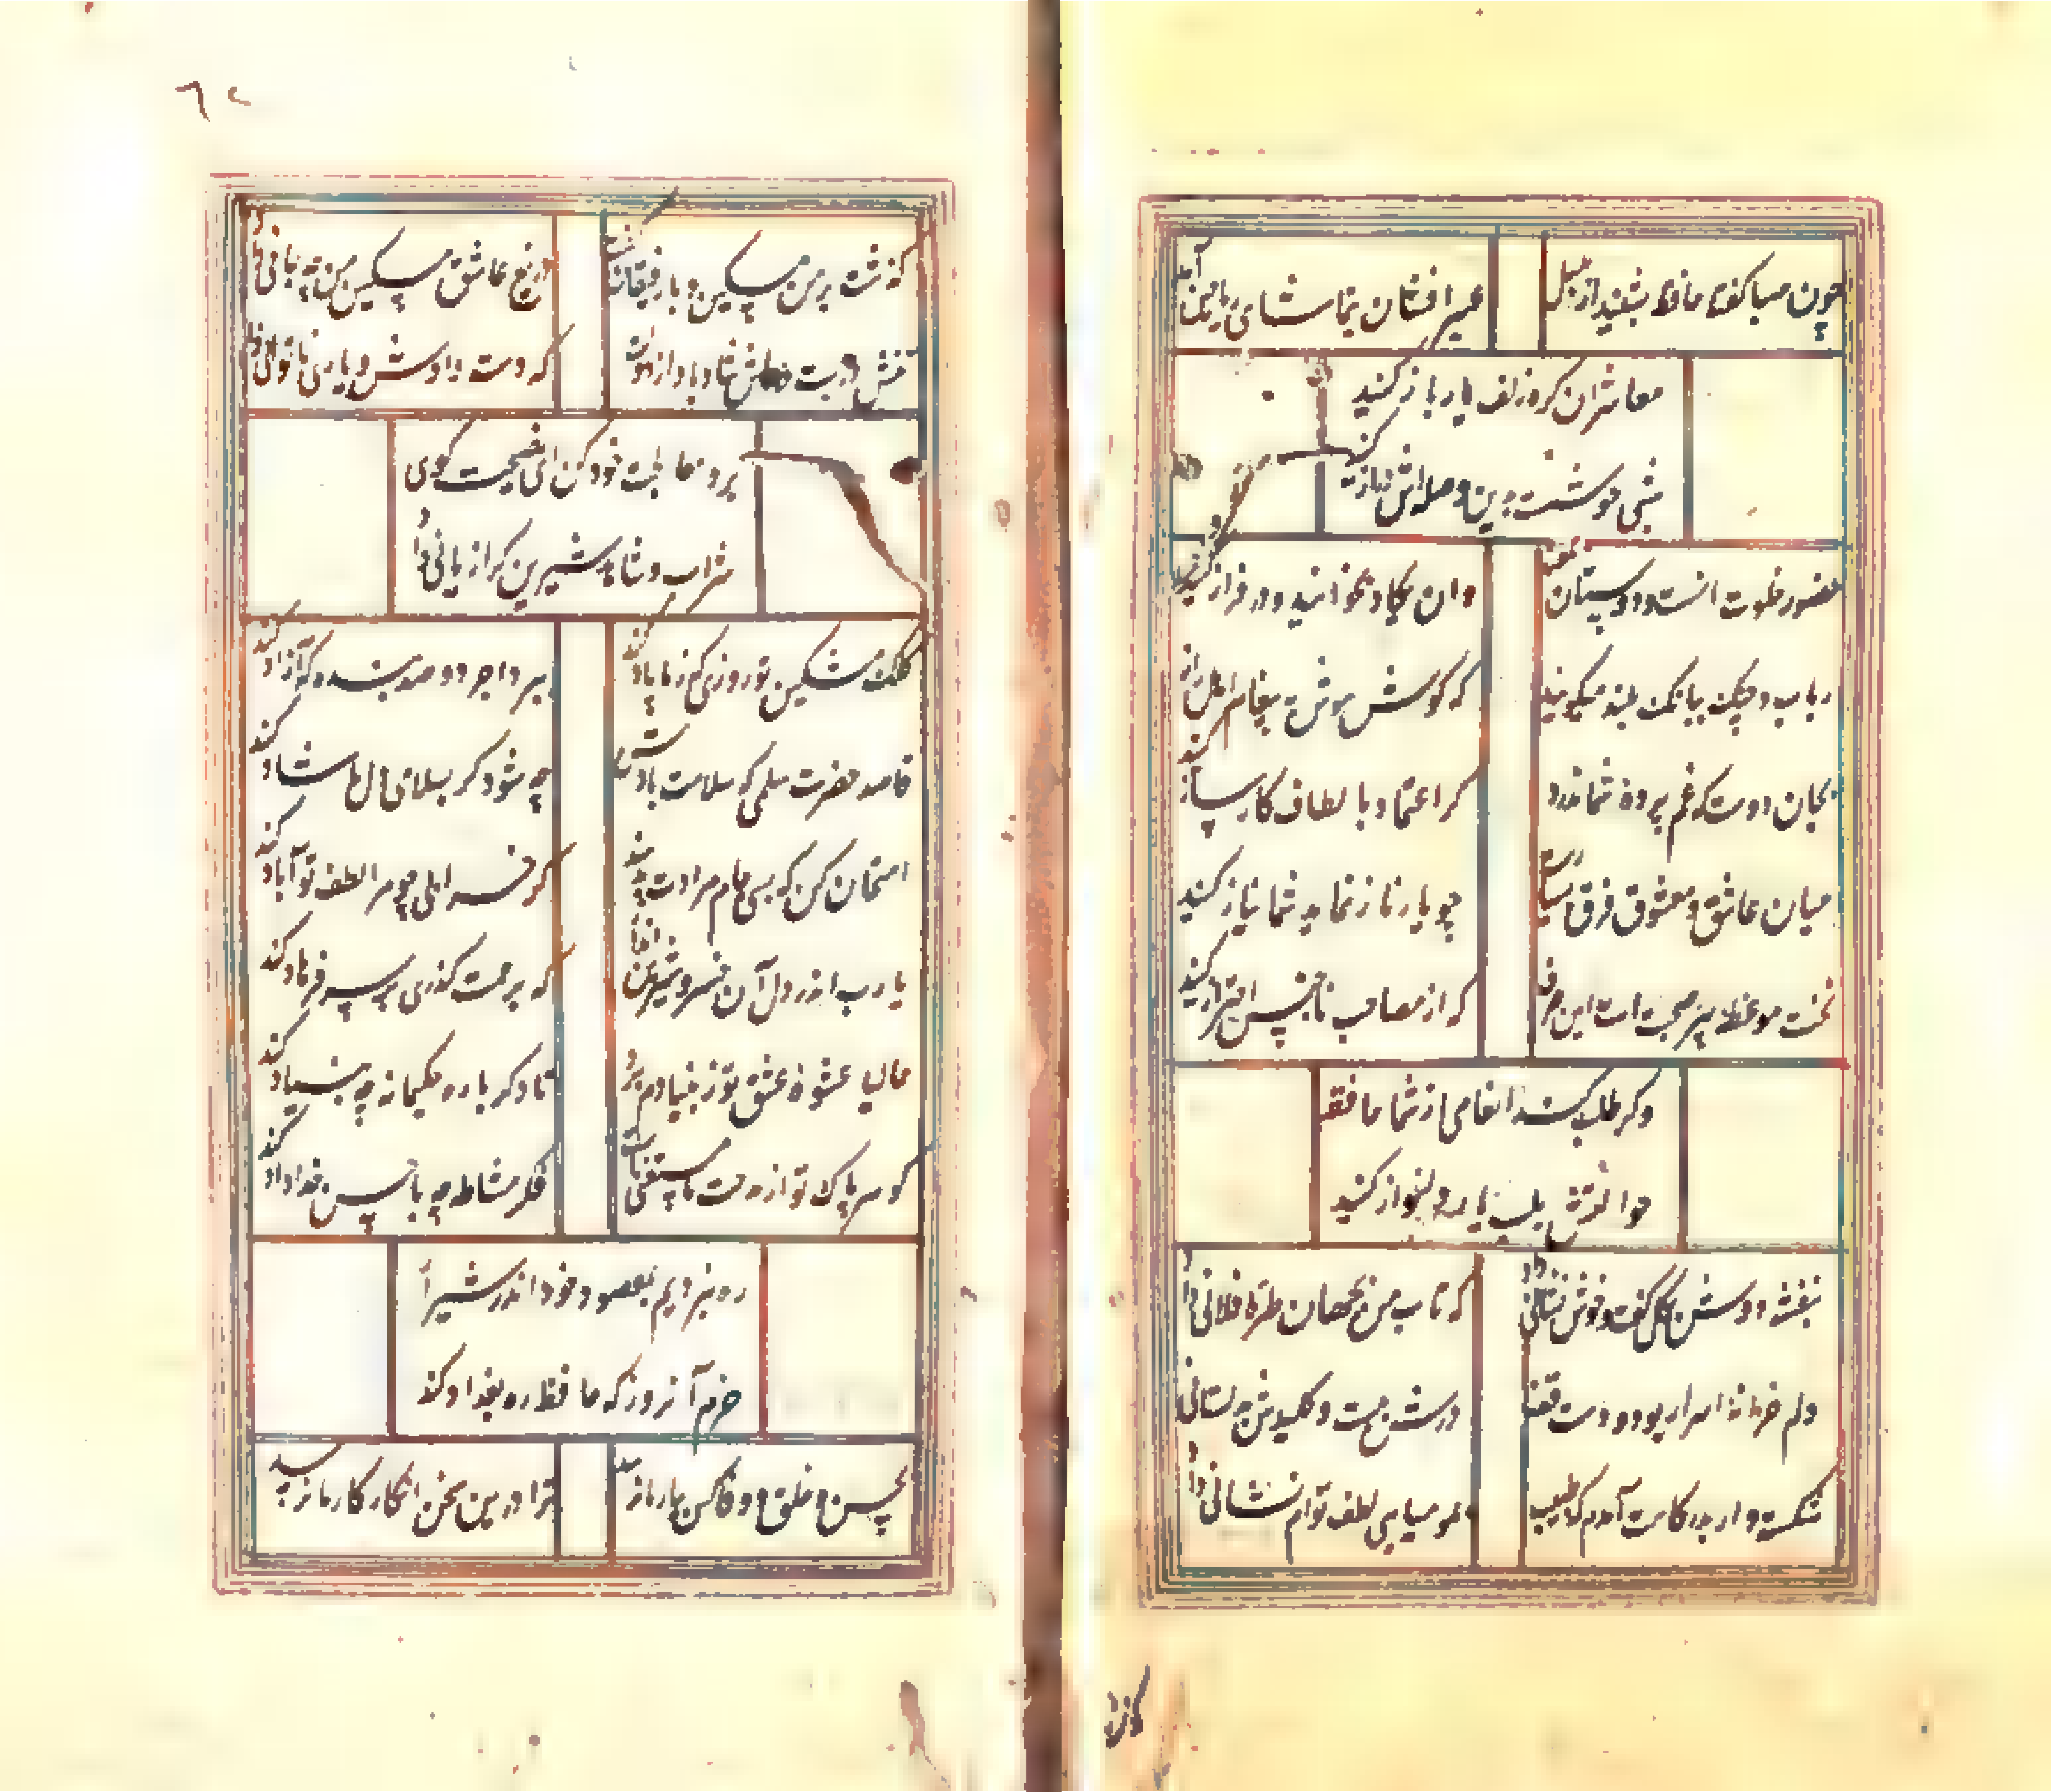 چون صبا کفتهٔ حافظ بشنید از بلبل
عبیر افشان بتماشای ریاحین آمد
معاشران کره زلف یار باز کنید
شبی خوشست بدین وصله اش دراز کنید
حضور خلوت انست و دوستان جمعند
وان یکاد بخوانید و در فراز کنید
رباب و چنک ببانک بلند میکویند
که کوش هوش به پیغام اهل راز کنید
بجان دوست که غم پرده شما ندرد
کر اعتماد بالطاف کارساز کنید
میان عاشق و معشوق فرق بسیارست
چو یار ناز نماید شما نیاز کنید
نخست موعظه پیر صحبت است این حرف
که از مصاحب ناجنس احتراز کنید
وکر طلب کند انعامی از شما حافظ
حوالتش بلب یار دلنواز کنید
بنفشه دوش بکل کفت و خوش نشانی داد
که تاب من بجهان طره فلانی داد
دلم خزانه اسرار بود و دست قضا
درش ببست و کلیدش بدلستانی داد
شکسته وار بدرکاهت آمدم که طبیب
بمومیایی لطف توام نشانی داد
کذشت
٦٢
کذشت بر من مسکین و با رقیبان کفت
دریغ عاشق مسکین من چه جانی داد
تنش درست و دلش شاد باد از دولت
که دست دادش و یاری ناتوانی داد
برو معالجت خود کن ای نصیحت کوی
شراب و شاهد شیرین کرا زیانی داد
کلک مشکین تو روزی که ز ما یاد کند
ببرد اجر دو صد بنده که آزاد کند
قاصد حضرت سلمی که سلامت بادش
چه شود کر بسلامی دل ما شاد کند
امتحان کن که بسی جام مرادت بدهند
کر خرابی چو مرا لطف تو آباد کند
یارب اندر دل آن خسرو شیرین انداز
که برحمت کذری بر سر فرهاد کند
حالیا عشوهٔ عشق تو ز بنیادم برد
تا دکر باره حکیمانه چه بنیاد کند
کوهر پاک تو از مدحت ما مستغنیست
فکر مشاطه چه با حسن خداداد کند
ره نبردیم بمقصود خود اندر شیراز
خرم آنروز که حافظ ره بغداد کند
بحسن و خلق و وفا کس بیار ما نرسد
ترا درین سخن انکار کار ما نرسد